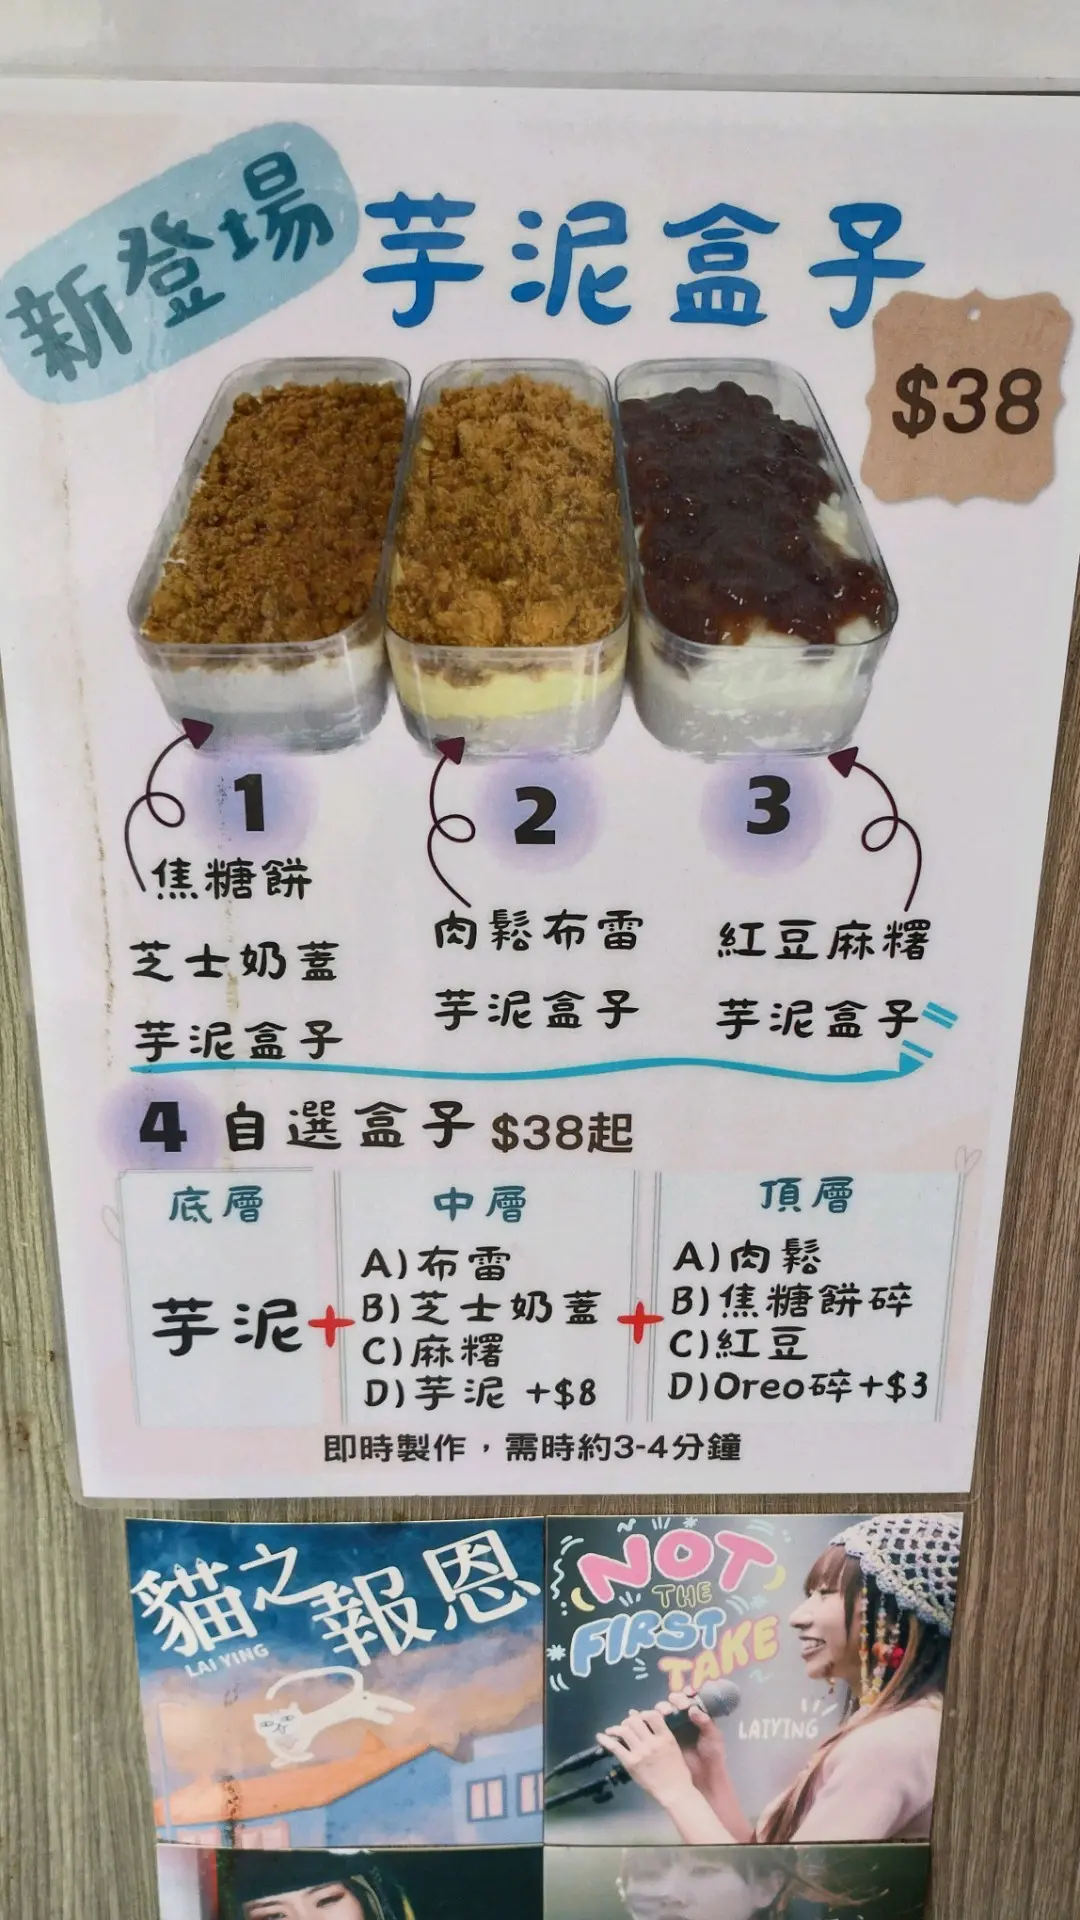 新登場
芋泥盒子
$38
1
焦糖餅
芝士奶蓋
芋泥盒子
2
肉鬆布雷
芋泥盒子
3
紅豆麻糬
芋泥盒子
4 自選盒子 $38起
底層
芋泥
+
中層
A)布雷
B)芝士奶蓋
C)麻糬
D)芋泥 +$8
+
頂層
A)肉鬆
B)焦糖餅碎
C)紅豆
D)Oreo碎+$3
即時製作，需時約3-4分鐘
貓之報恩
LAI YING
NOT
THE
FIRST
TAKE
LAIYING